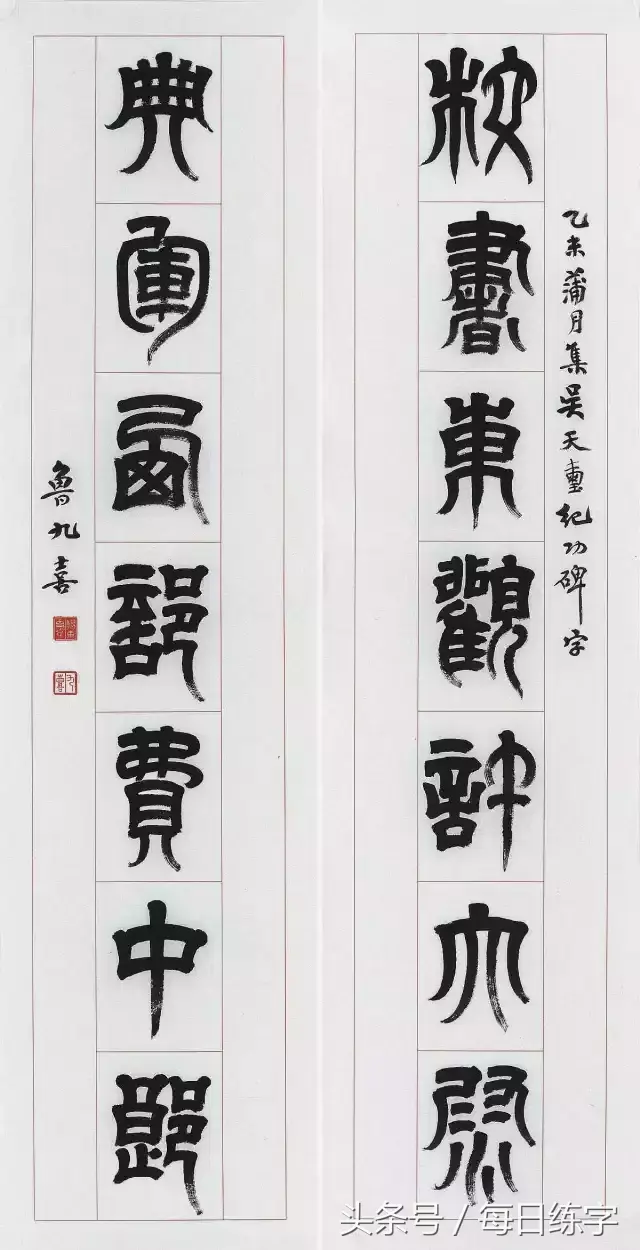 乙未蒲月集吴天璽纪功碑字
校書東觀許大
典軍西部費中郎
魯九喜
头条号 / 每日练字